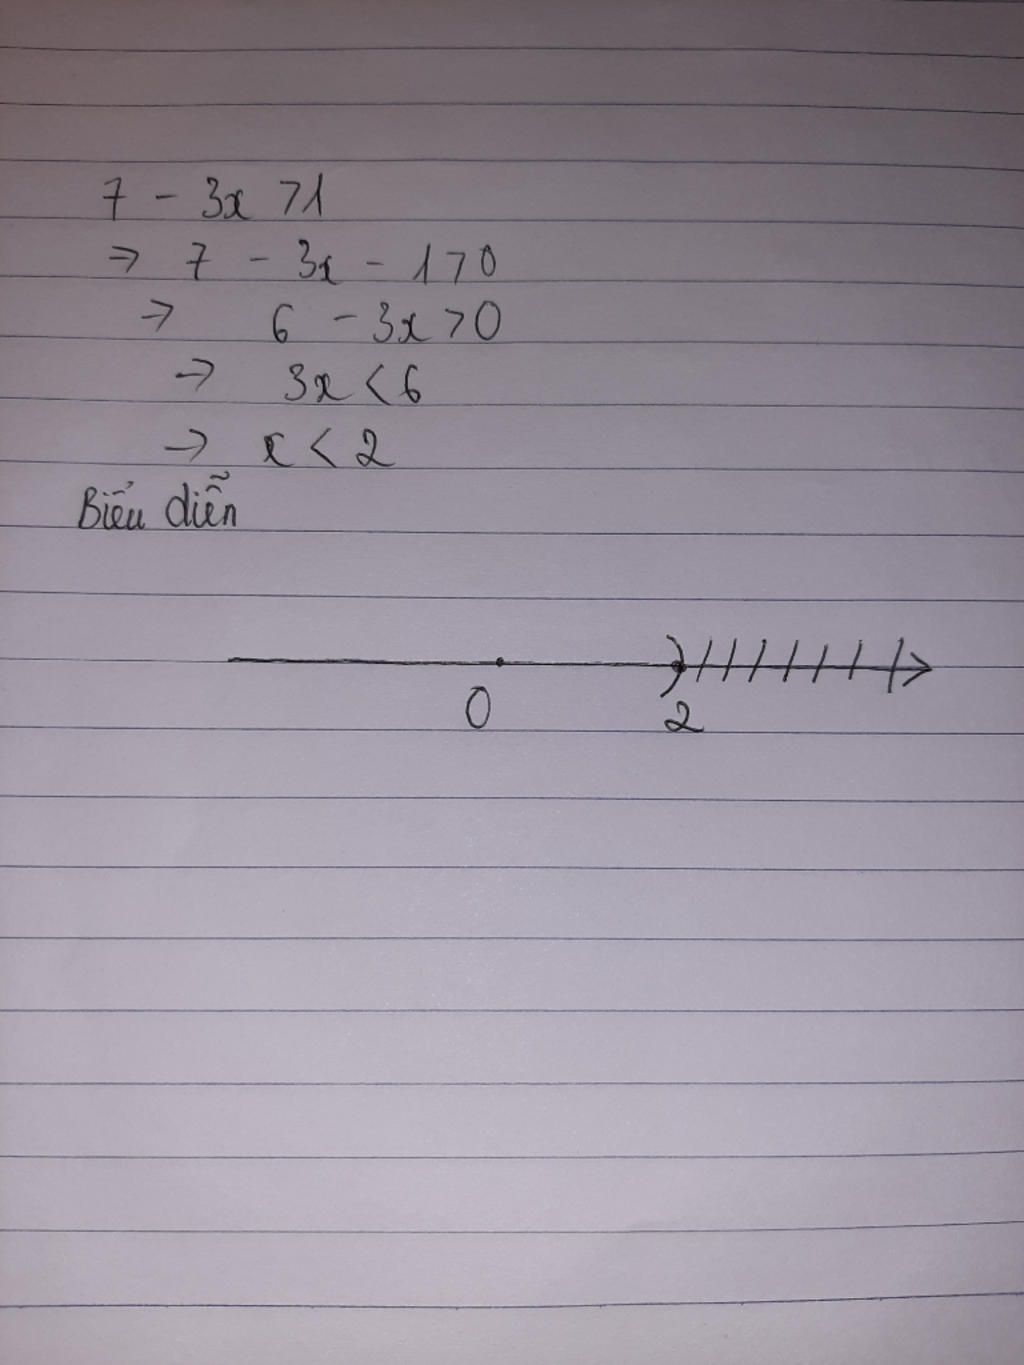 7 - 3x > 1
⇒ 7 - 3x - 1 > 0
⇒ 6 - 3x > 0
→ 3x < 6
→ x < 2
Biểu diễn
0 2